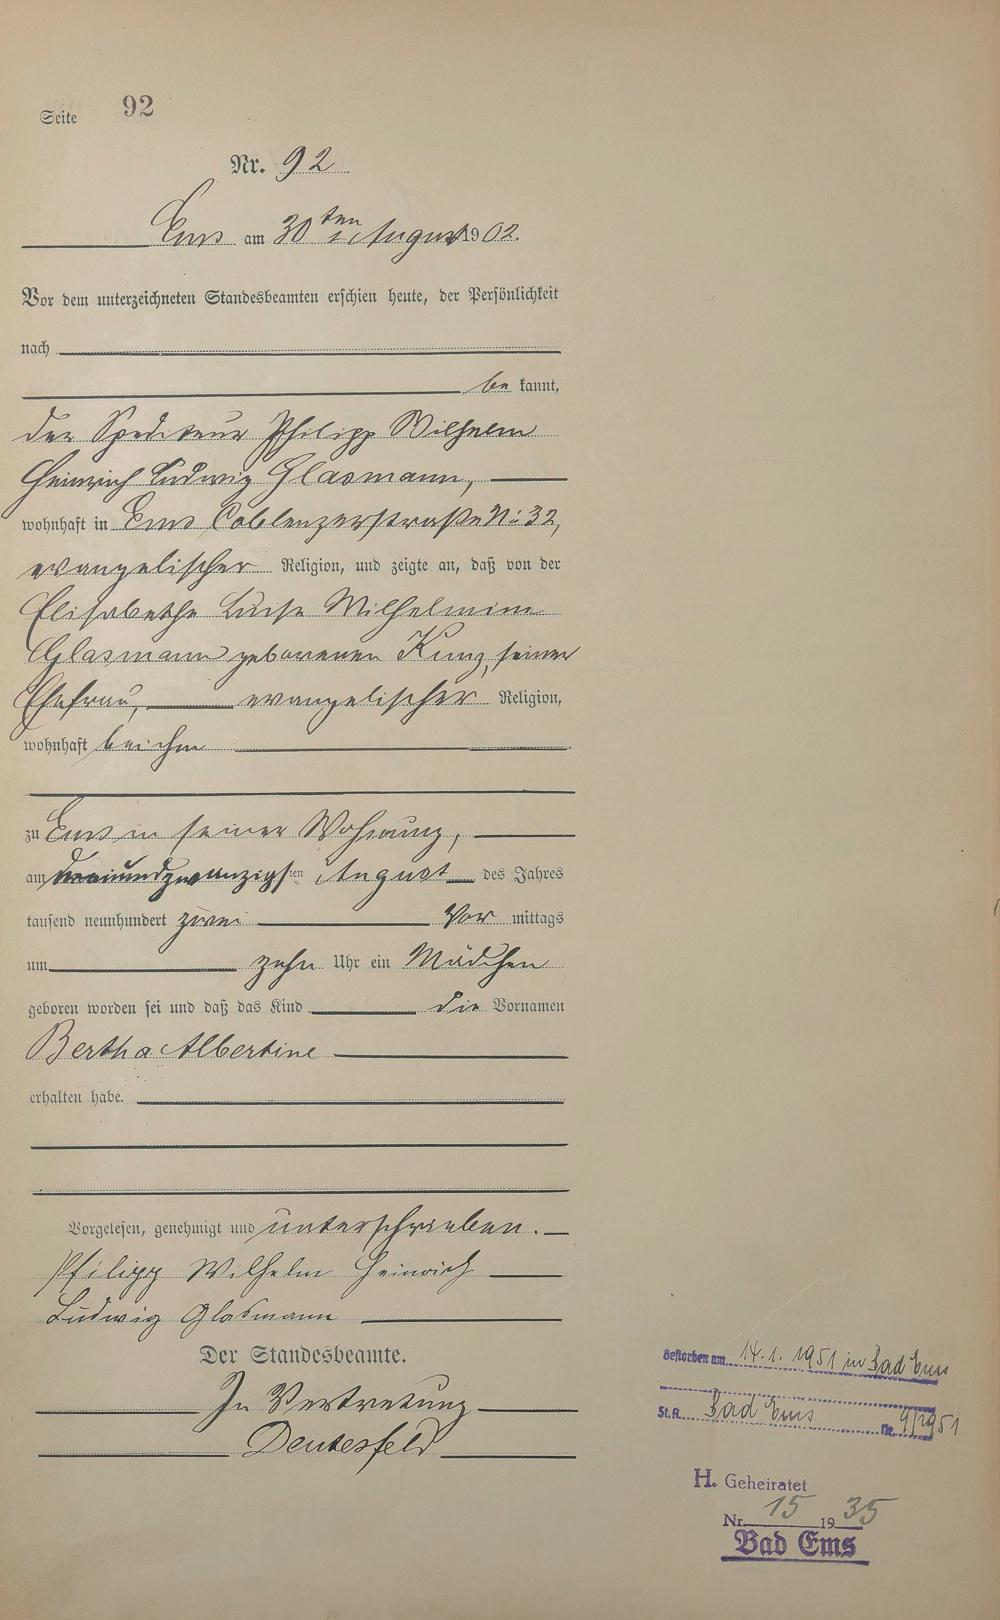 Seite 92
Nr. 92
Ems am 30ten August 1902.
Vor dem unterzeichneten Standesbeamten erschien heute, der Persönlichkeit
nach
be kannt,
der Spediteur Philipp Wilhelm
Heinrich Ludwig Glasmann,
wohnhaft in Ems Coblenzerstraße No 32,
evangelischer Religion, und zeigte an, daß von der
Elisabethe Luise Wilhelmine
Glasmann geborenen Kunz, seiner
Ehefrau, evangelischer Religion,
wohnhaft bei ihm
zu Ems in seiner Wohnung,
am dreiundzwanzigsten August des Jahres
tausend neunhundert zwei Vor mittags
um zehn Uhr ein Mädchen
geboren worden sei und daß das Kind die Vornamen
Bertha Albertine
erhalten habe.
Vorgelesen, genehmigt und unterschrieben.
Philipp Wilhelm Heinrich
Ludwig Glasmann
Der Standesbeamte.
In Vertretung
Deutesfeld
Gestorben am 14.1.1951 in Bad Ems
St.A. Bad Ems Nr. 9/1951
H. Geheiratet
Nr. 15 1935
Bad Ems